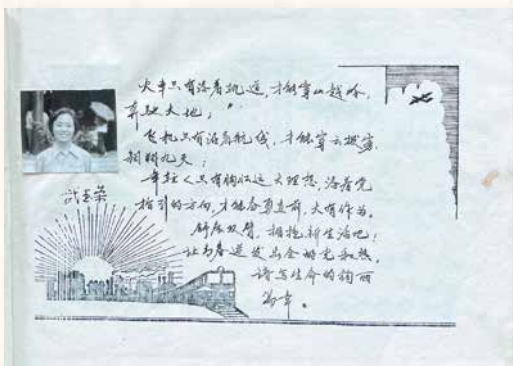 火车只有沿着轨道，才能穿山越岭，
奔驰大地；
飞机只有沿着航线，才能穿云拨雾，
翱翔九天；
年轻人只有胸怀远大理想，沿着党
指引的方向，才能奋勇直前，大有作为。
舒展双臂，拥抱新生活吧；
让青春迸发出全部光和热，
谱写生命的绚丽
篇章。